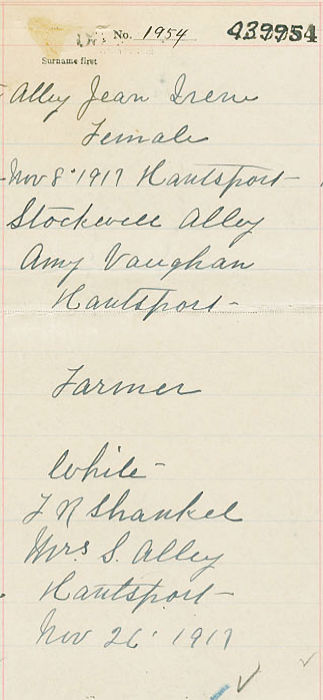 No. 1954
439954
Surname first
Alley Jean Irene
Female
Nov 8 1917 Hantsport
Stockwell Alley
Amy Vaughan
Hantsport
Farmer
White
F R Shankel
Mrs S. Alley
Hantsport
Nov 26 1917